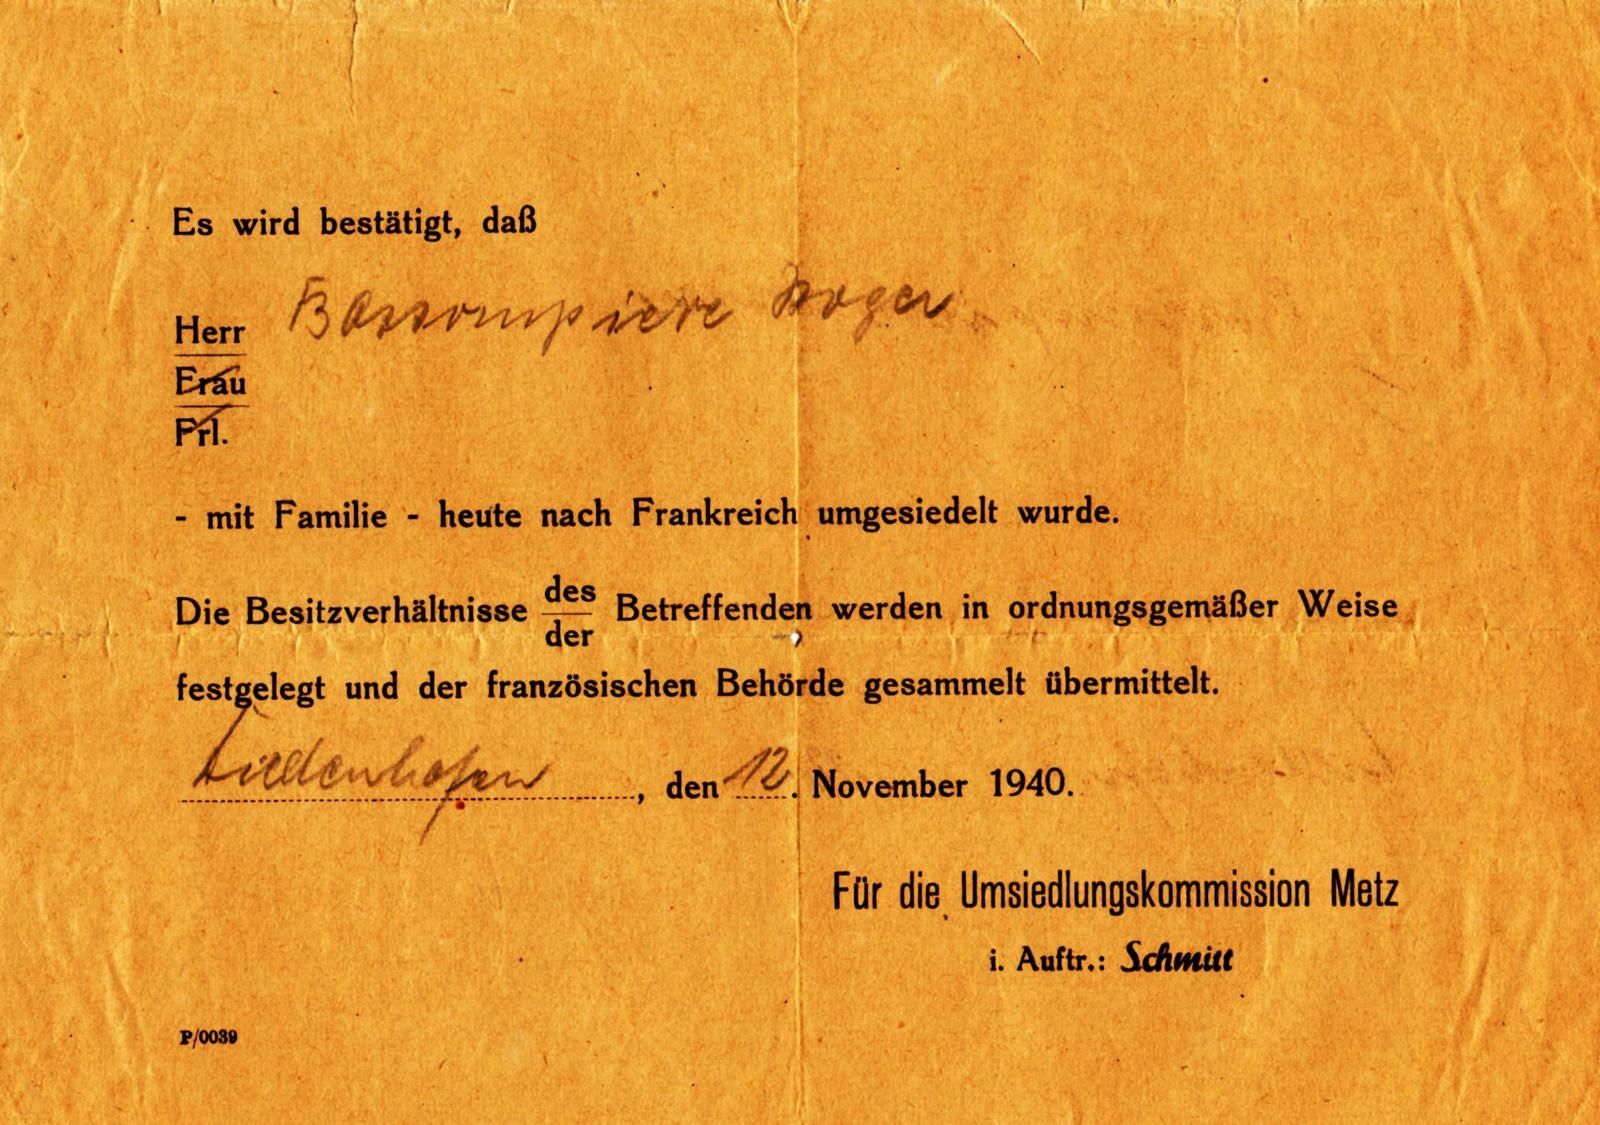 Es wird bestätigt, daß
Herr Bassompiere Roger
Frau
Frl.
- mit Familie - heute nach Frankreich umgesiedelt wurde.
Die Besitzverhältnisse des/der Betreffenden werden in ordnungsgemäßer Weise
festgelegt und der französischen Behörde gesammelt übermittelt.
Diedenhofen, den 12. November 1940.
Für die Umsiedlungskommission Metz
i. Auftr.: Schmitt
P/0039